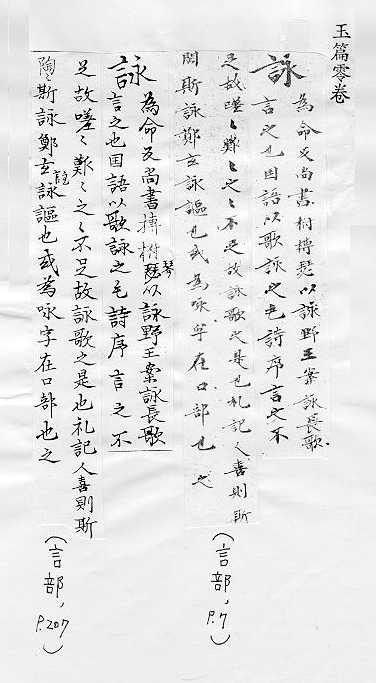 玉篇零卷
詠
為命反尚書拊搏瑟以詠野王案詠長歌
言之也国語以歌詠之毛詩序言之不
足故嗟〻難〻之〻不足故詠歌之是也礼記人喜則斯
斯詠鄭玄詠謳也或為咏字在口部也之
(言部, P.7)
詠
為命反尚書搏拊琴瑟以詠野王案詠長歌
言之也国語以歌詠之毛詩序言之不
足故嗟〻難〻之〻不足故詠歌之是也礼記人喜則斯
陶斯詠鄭玄詠謳也或為咏字在口部也之
(言部, P.207)